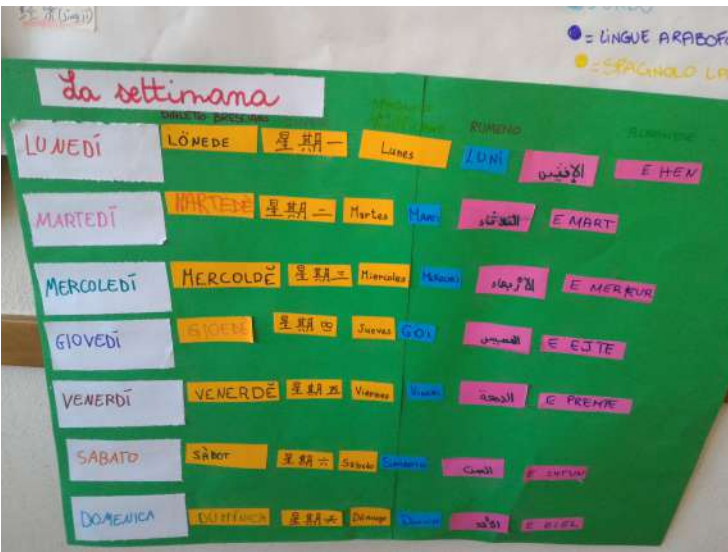 (jing ji)
= LINGUE ARABOFO
= SPAGNOLO LA
La settimana
DIALETTO BRESCIANO
RUMENO
LUNEDÍ LÖNEDE 星期一 Lunes LUNI الإثنين E HEN
MARTEDÍ MARTEDÈ 星期二 Martes الثلاثاء E MART
MERCOLEDÍ MERCOLDĚ 星期三 Miercoles الأربعاء E MERKUR
GIOVEDÍ GIOEDÈ 星期四 Jueves GOI الخميس E EJTE
VENERDÍ VENERDĚ 星期五 Viernes الجمعة E PREMTE
SABATO SÀBOT 星期六 Sabado السبت E SHTUN
DOMENICA DUMÌNICA 星期天 الأحد E DIEL